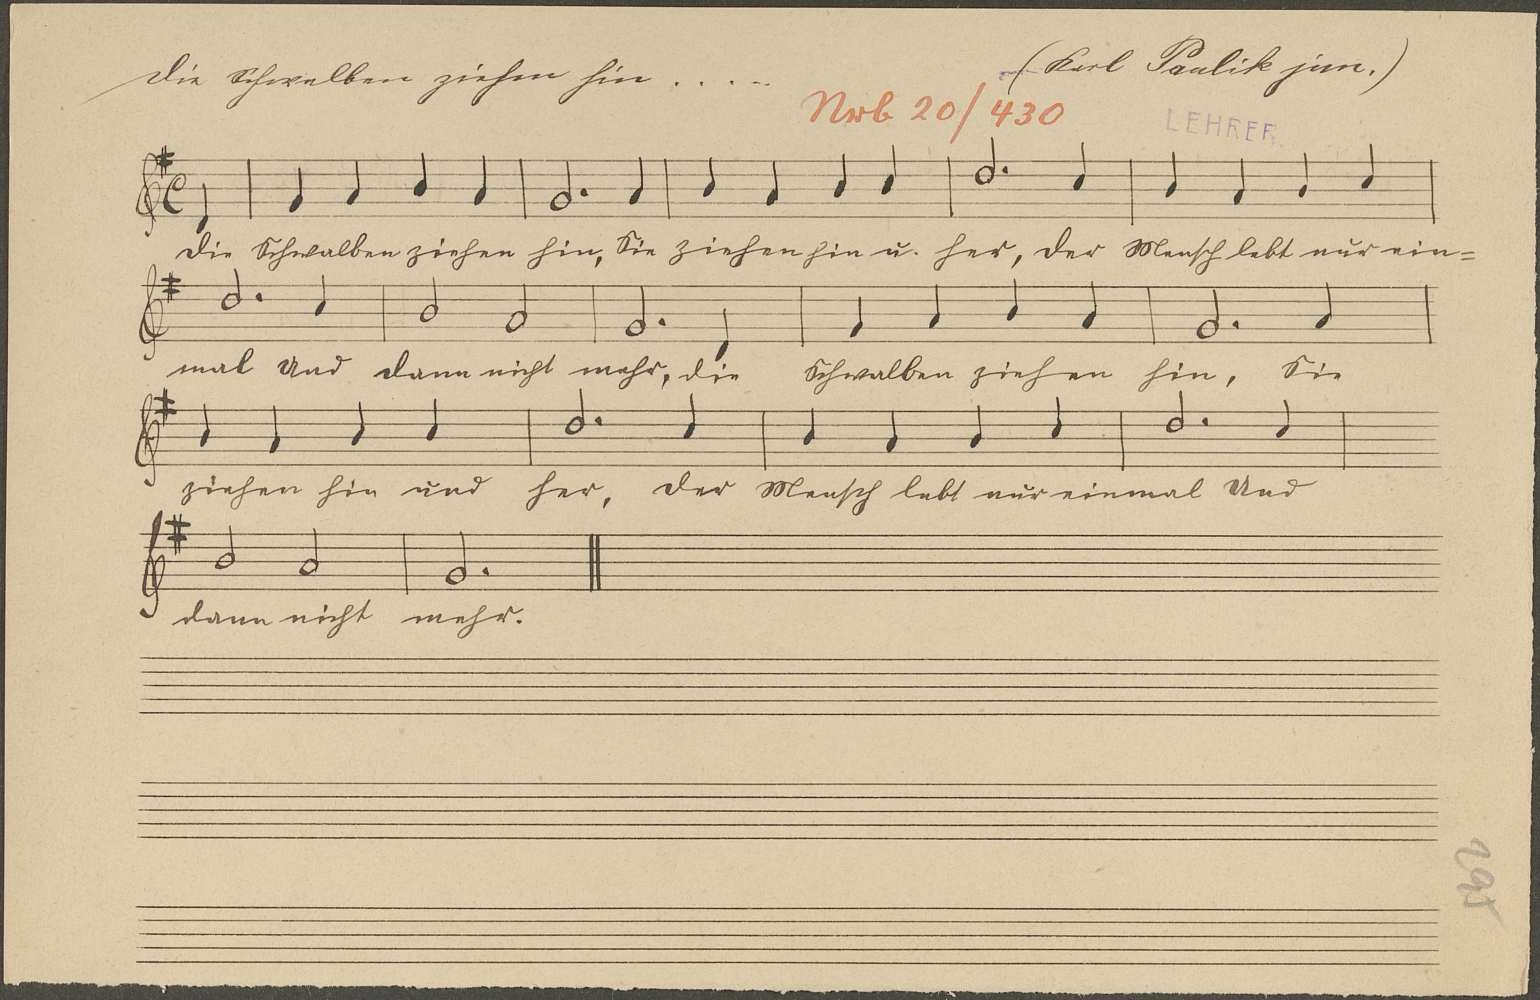 Die Schwalben ziehen hin . . . . . (Karl Paulik jun.)
Nrb 20/430
LEHRER
Die Schwalben ziehen hin, Sie ziehen hin u. her, der Mensch lebt nur ein=
mal Und dann nicht mehr, die Schwalben ziehen hin, Sie
ziehen hin und her, der Mensch lebt nur einmal Und
dann nicht mehr.